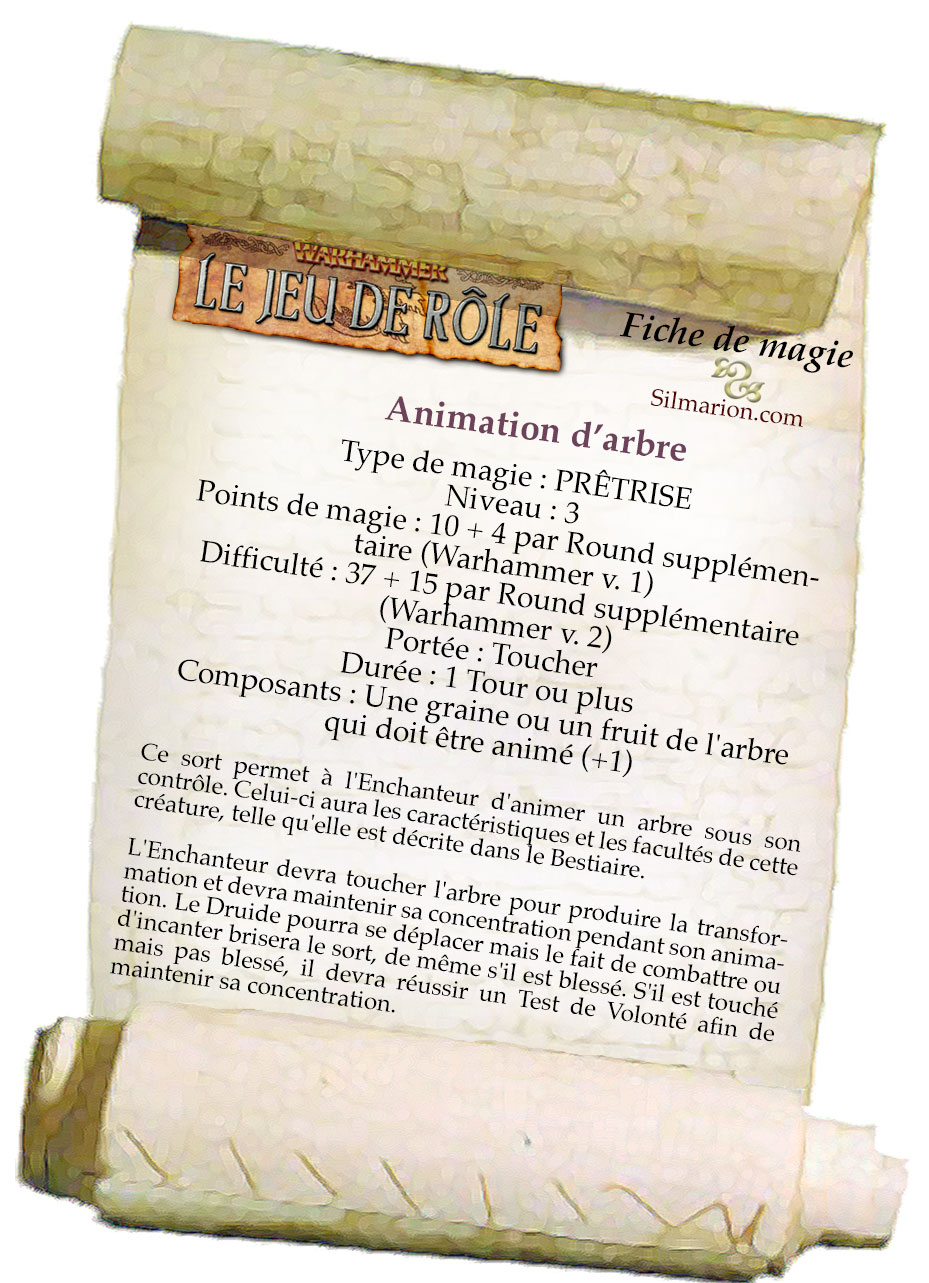 WARHAMMER
LE JEU DE RÔLE
Fiche de magie
Silmarion.com
Animation d’arbre
Type de magie : PRÊTRISE
Niveau : 3
Points de magie : 10 + 4 par Round supplémen-
taire (Warhammer v. 1)
Difficulté : 37 + 15 par Round supplémentaire
(Warhammer v. 2)
Portée : Toucher
Durée : 1 Tour ou plus
Composants : Une graine ou un fruit de l'arbre
qui doit être animé (+1)
Ce sort permet à l'Enchanteur d'animer un arbre sous son
contrôle. Celui-ci aura les caractéristiques et les facultés de cette
créature, telle qu'elle est décrite dans le Bestiaire.
L'Enchanteur devra toucher l'arbre pour produire la transfor-
mation et devra maintenir sa concentration pendant son anima-
tion. Le Druide pourra se déplacer mais le fait de combattre ou
d'incanter brisera le sort, de même s'il est blessé. S'il est touché
mais pas blessé, il devra réussir un Test de Volonté afin de
maintenir sa concentration.